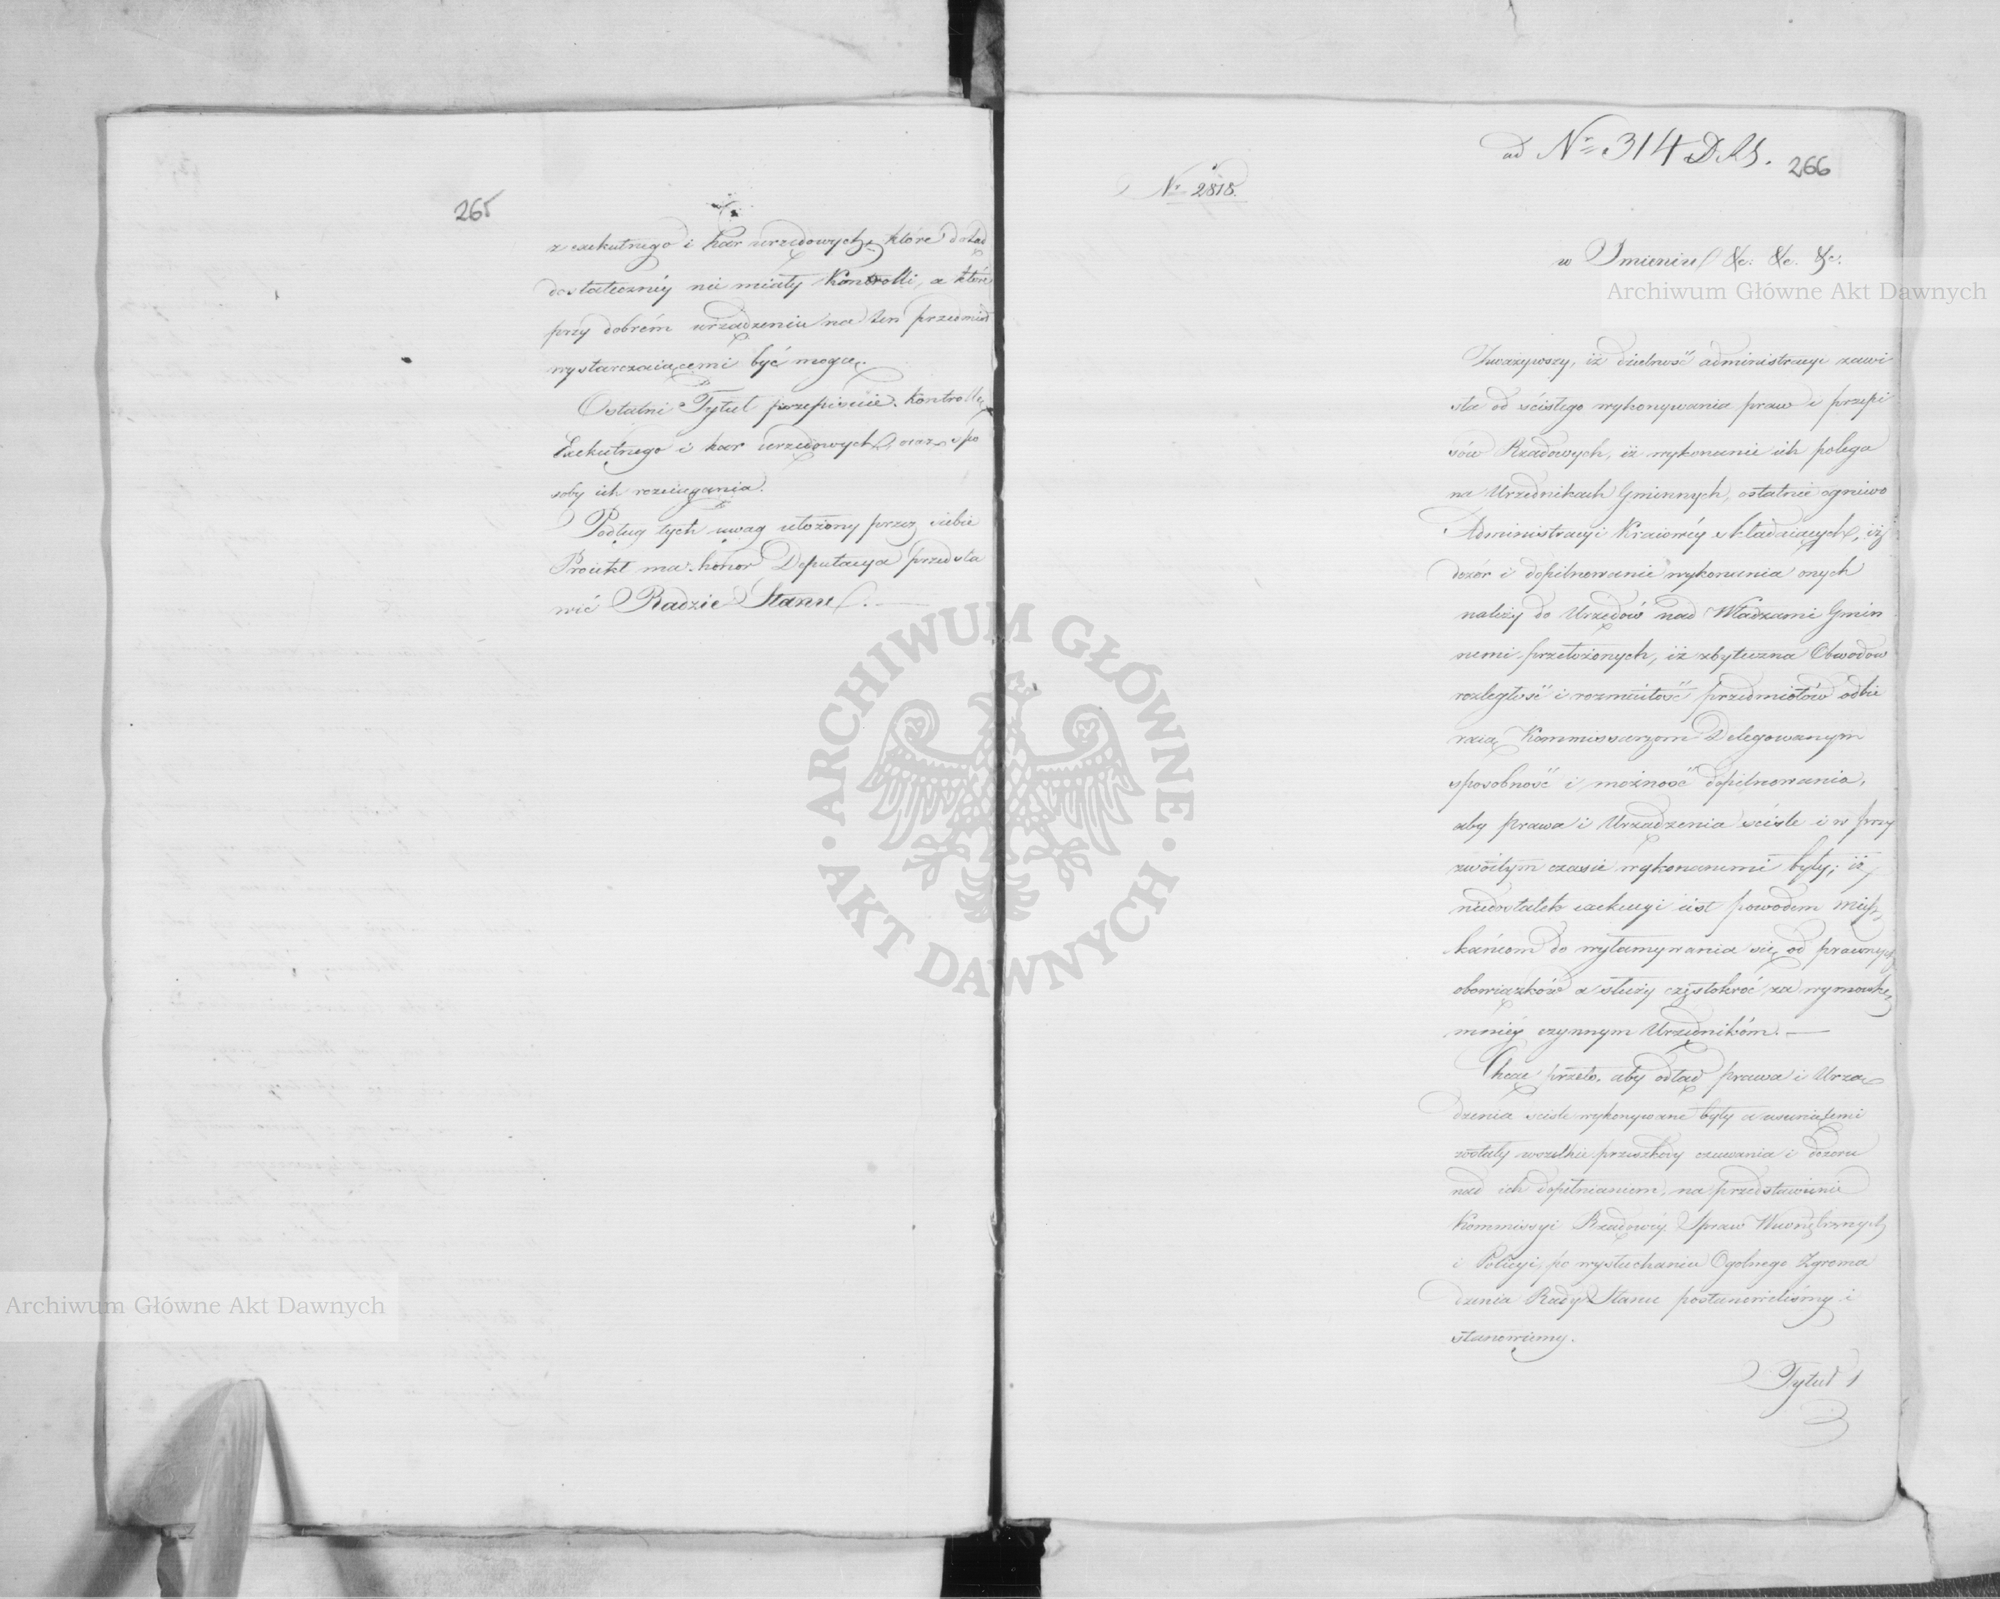 265
z exekutnego i kar urzędowych, które dotąd
dostatecznéy nie miały Kontrolli, a które
przy dobrém urządzeniu na ten przedmiot
wystarczaiącemi być mogą.
Ostatni Tytuł przepisuie kontrollę
Exekutnego i kar urzędowych, oraz spo
soby ich rozciągania.
Podług tych uwag ułożony przez siebie
Proiekt ma honor Deputacya przedsta
wić Radzie Stanu.
ad Nr 314 D.R.S.
266
Nr 2818.
w Imieniu &c. &c. &c.
Zważywszy, iż dzielność administracyi zawi
sła od ścisłego wykonywania praw i przepi
sów Rządowych, iż wykonanie ich polega
na Urzędnikach Gminnych, ostatnie ogniwo
Administracyi Kraiowéy składaiących, iż
dozór i dopilnowanie wykonania onych
należy do Urzędów nad Władzami Gmin
nemi przełożonych, iż zbyteczna Obwodów
rozległość i rozmaitość przedmiotów odbie
raią Kommissarzom Delegowanym
sposobność i możność dopilnowania,
aby prawa i Urządzenia ściśle i w przy
zwoitym czasie wykonanemi były; iż
niedostatek exekucyi iest powodem miesz
kańcom do wyłamywania się od prawnych
obowiązków a służy częstokroć za wymówkę
mniéy czynnym Urzędnikóm.
Chcąc przeto, aby odtąd prawa i Urzą
dzenia ściśle wykonywane były a usuniętemi
zostały wszelkie przeszkody czuwania i dozoru
nad ich dopełnianiem, na przedstawienie
Kommissyi Rządowéy Spraw Wewnętrznych
i Policyi, po wysłuchaniu Ogólnego Zgroma
dzenia Rady Stanu postanowiliśmy i
stanowiemy.
Tytuł 1
Archiwum Główne Akt Dawnych
Archiwum Główne Akt Dawnych
ARCHIWUM GŁÓWNE · AKT DAWNYCH ·